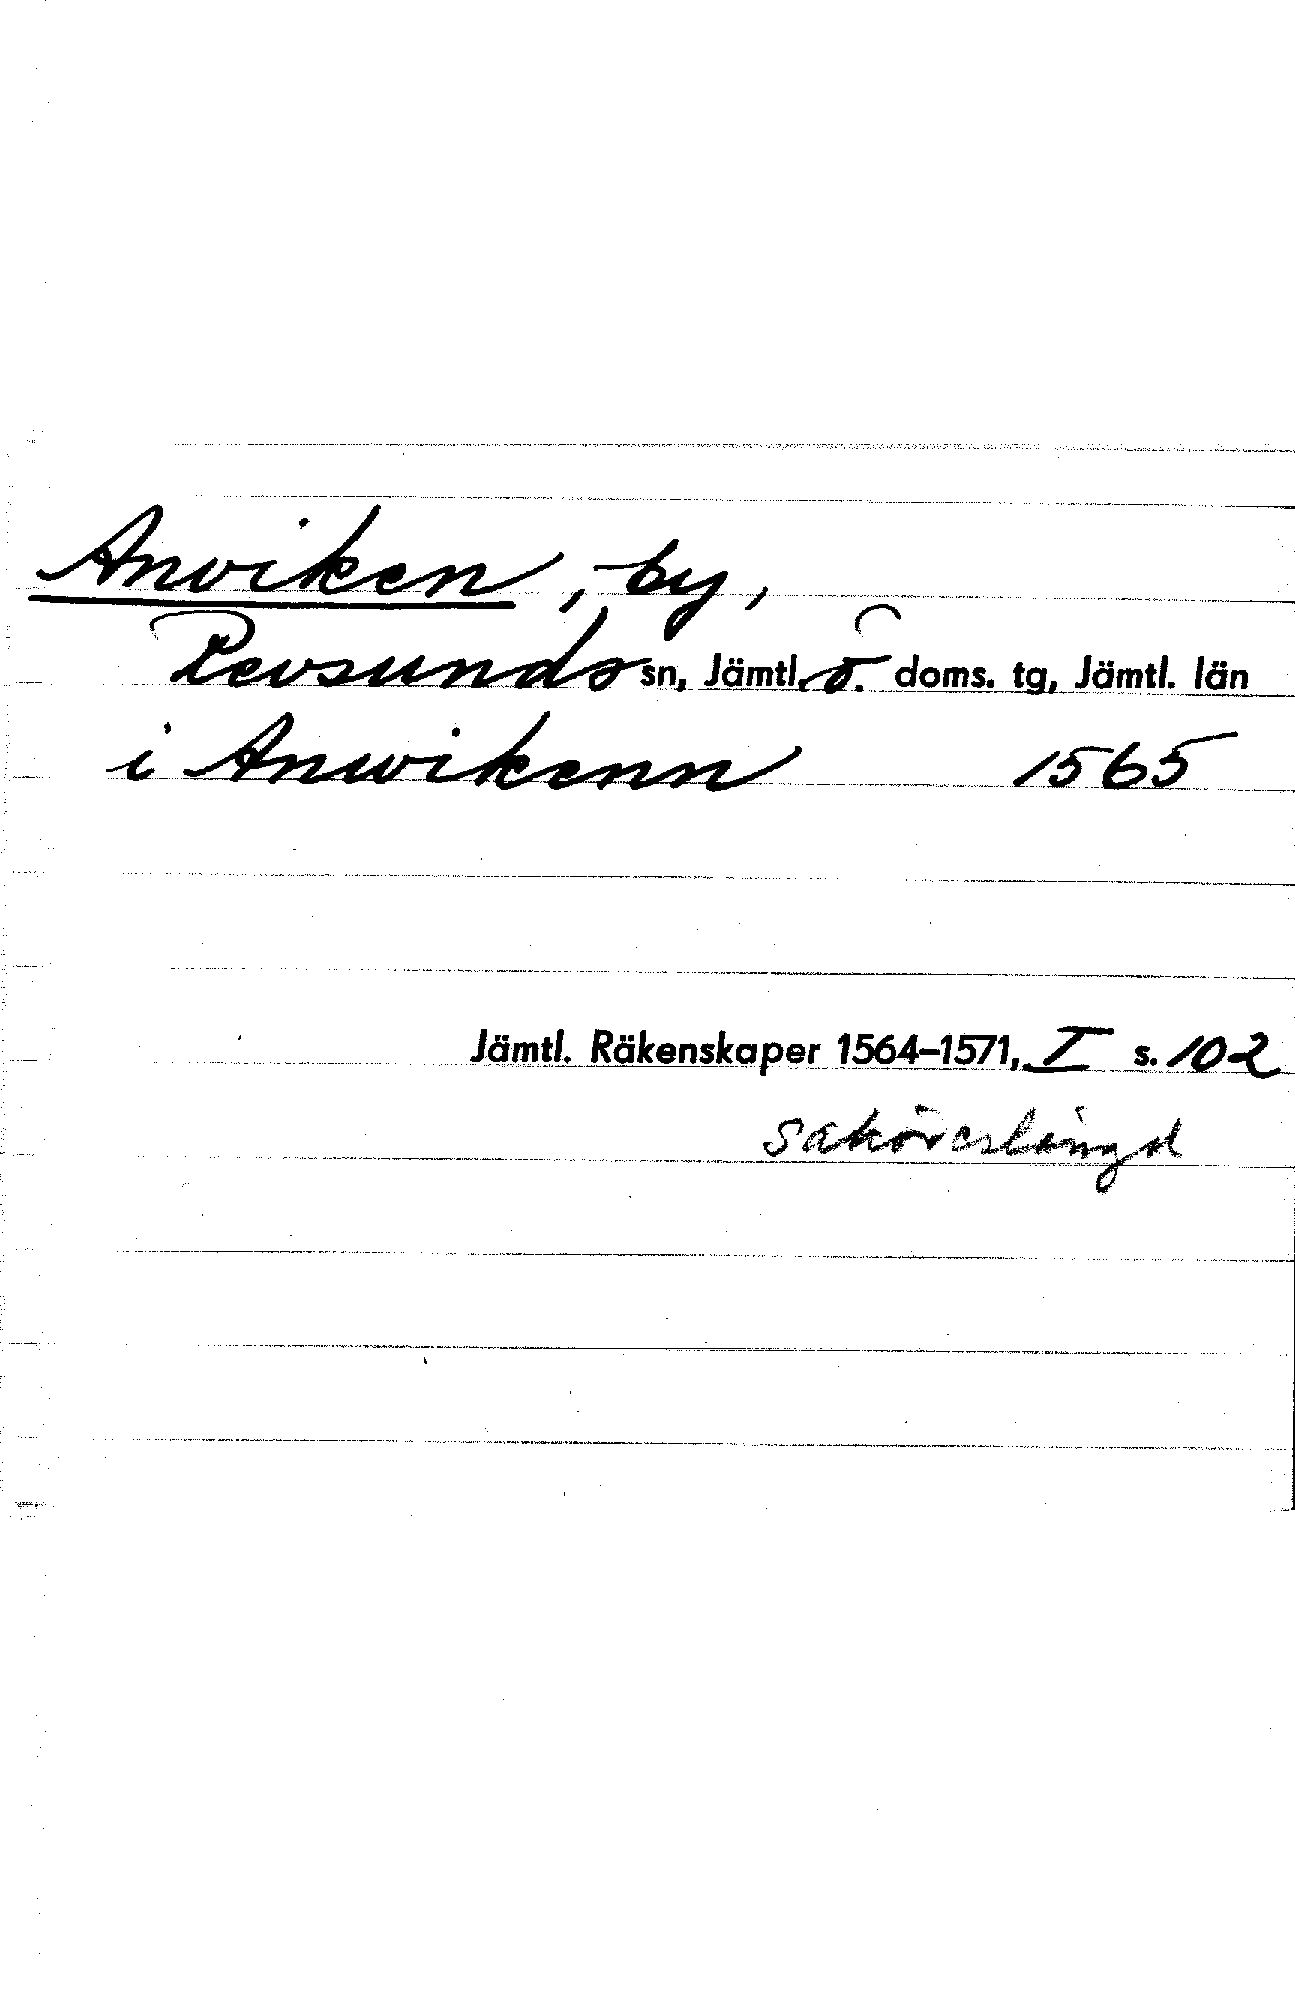 Anviken, by,
Revsunds sn, Jämtl. ö. doms. tg, Jämtl. län
i Anwikenn 1565
Jämtl. Räkenskaper 1564–1571, I s. 102
saköreslängd